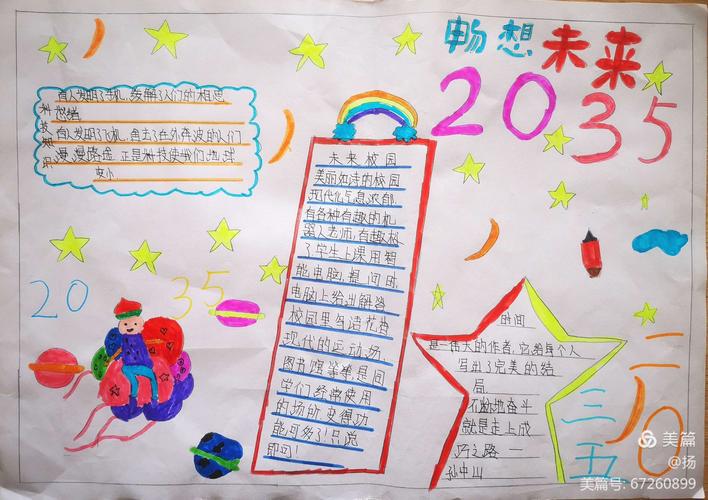 畅想未来
2035
有人发明了手机,缓解了人们的相思
愁绪
科技知识
有人发明了飞机,免去了在外奔波的人们
漫漫路途,正是科技使我们地球
变小
未来校园
美丽如诗的校园
现代化气息浓郁
有各种有趣的机
器人老师,有趣极
了学生上课用智
能电脑,提问时,
电脑上给出解答
校园里鸟语花香
现代的运动场,
图书馆等等,是同
学们经常使用
的场所,变得功
能可多了!只说
即可!
20 35
时间
是一伟大的作者,它给每个人
写出了完美的结
局
不断地奋斗
就是走上成
功之路 一
孙中山
二〇三五
美篇
@扬
美篇号: 67260899